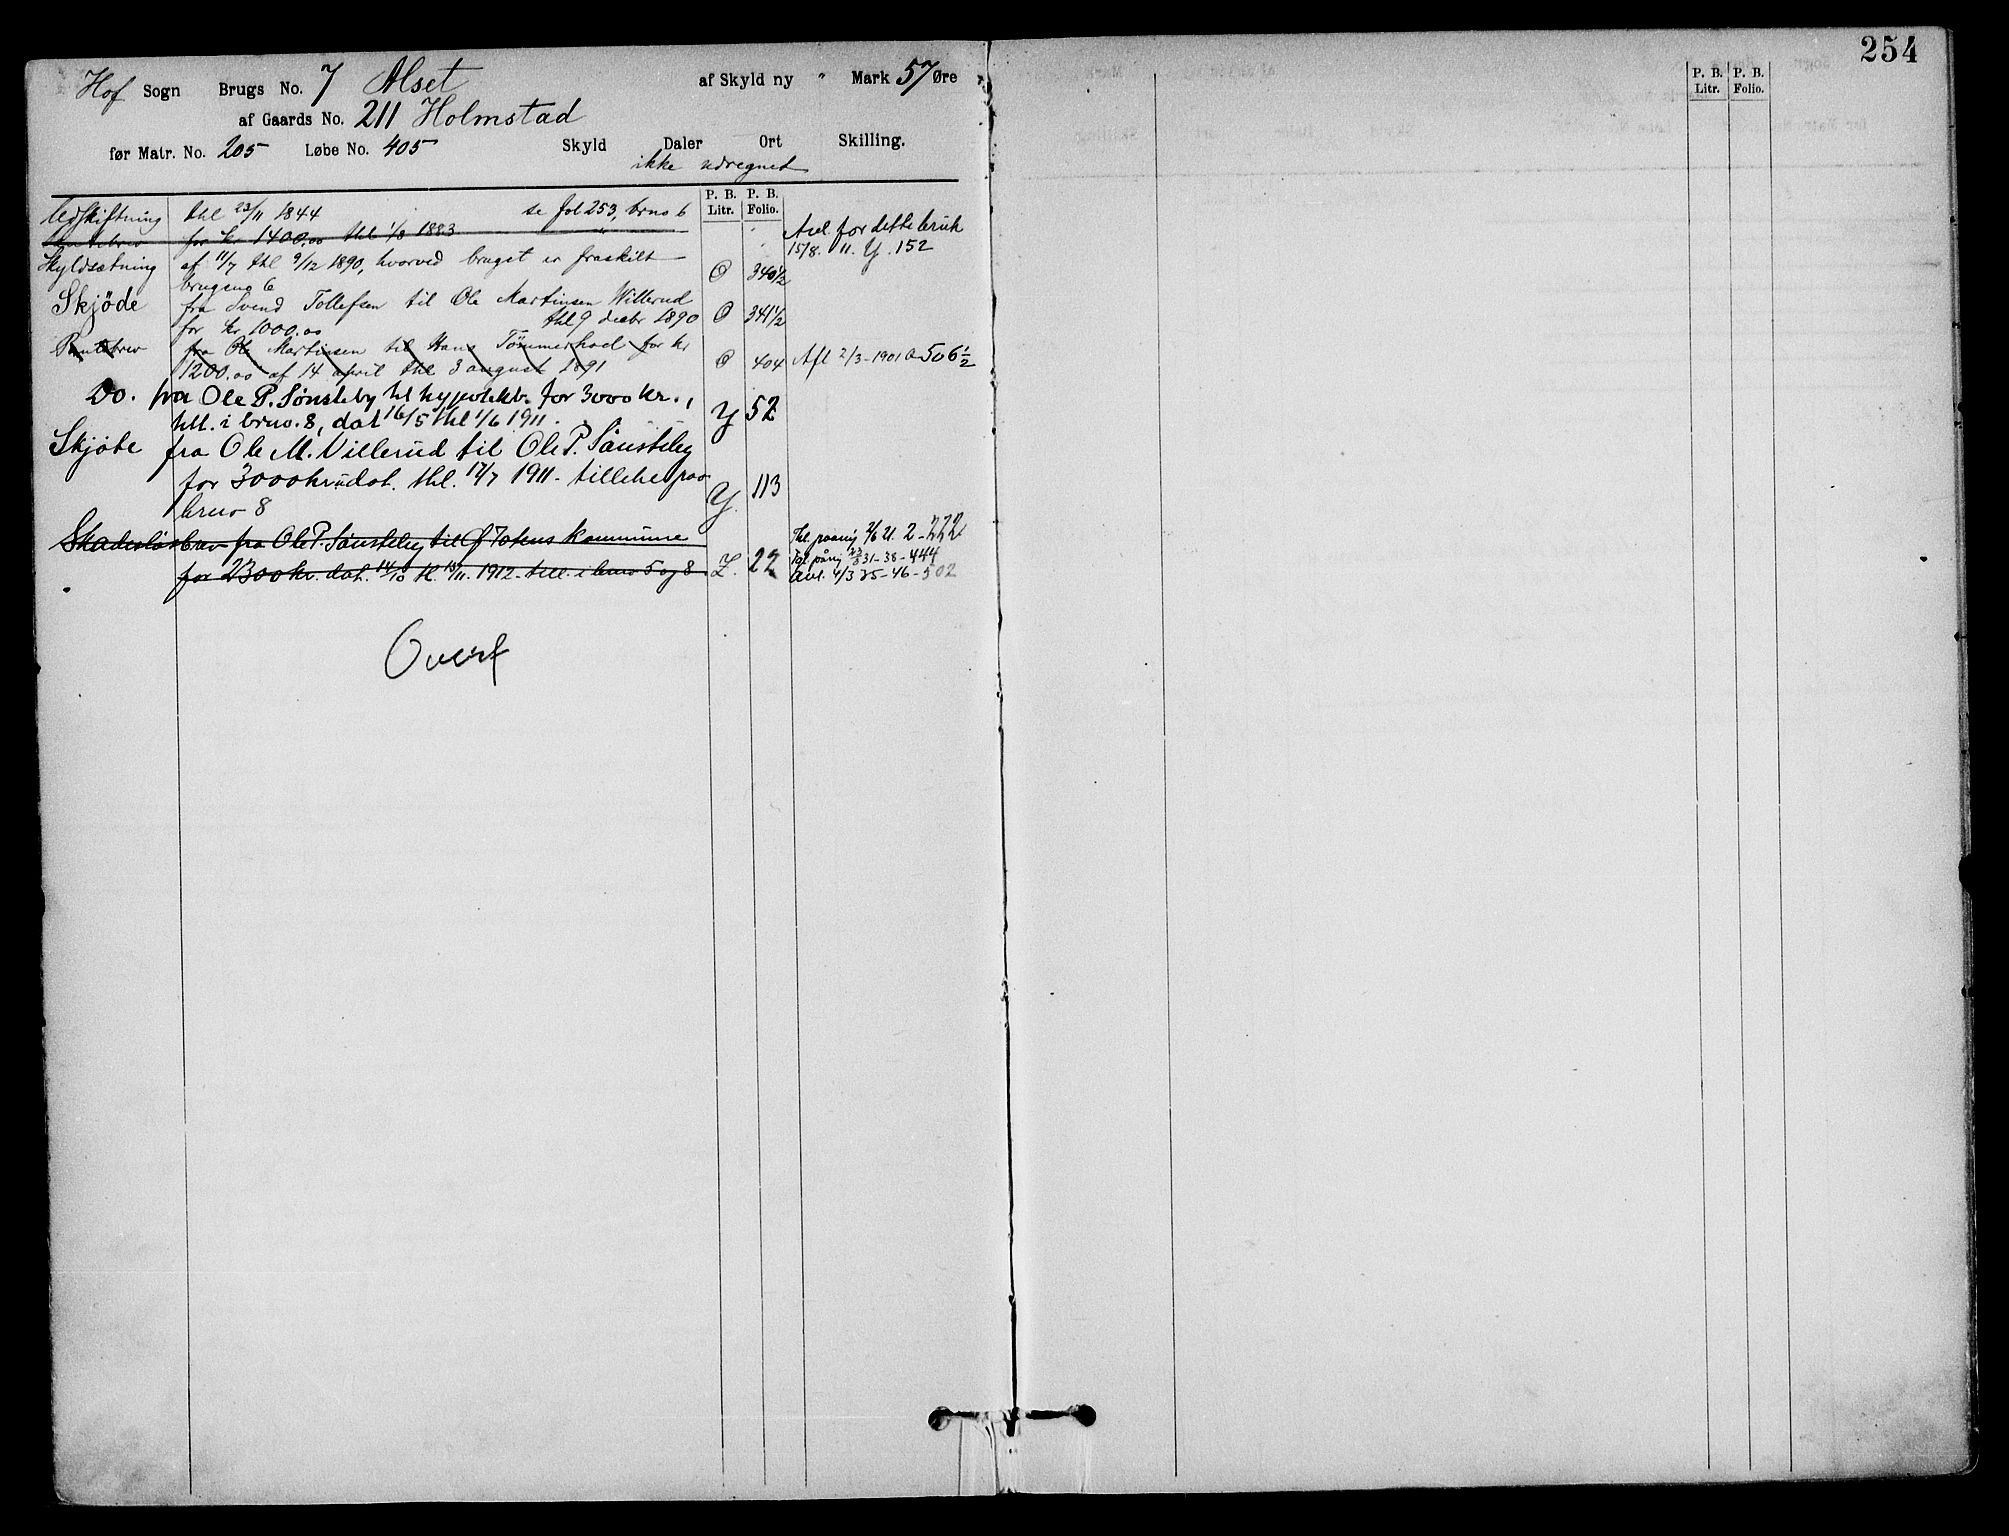 254
Hof Sogn Brugs No. 7 Alset af Skyld ny " Mark 57 Øre
af Gaards No. 211 Holmstad
før Matr. No. 205 Løbe No. 405 Skyld Daler Ort Skilling.
ikke udregnet
P. B. Litr. P. B. Folio.
P. B. Litr. P. B. Folio.
Udskiftning thl 23/11 1844 se fol 253, brno 6
Pantebrev for kr 1400.00 thl 1/8 1883 " Avl. for dette bruk
15/8. 11. Y. 152
Skyldsætning af 11/7 thl 9/12 1890, hvorved bruget er fraskilt
brugsno 6 O 340 1/2
Skjöde fra Svend Tollefsen til Ole Martinsen Willerud
for kr 1000.00 thl 9 decbr 1890 O 341 1/2
Pantebrev fra Ole Martinsen til Hans Tömmerhol for kr
1200.00 af 14 april thl 3 august 1891 O 404 Afl 2/3-1901 Q 506 1/2
Do. fra Ole P. Sønsteby til hypotekb. for 3000 kr.,
till. i brno. 8, dat 16/5 thl 1/6 1911. Y 52
Skjöte fra Ole M. Villerud til Ole P. Sønsteby
for 3000 kr udat. thl. 17/7 1911 - tillike paa
brno 8 Y. 113
Skadesløsbrev fra Ole P. Sønsteby til Ø Totens kommune
for 2300 kr. dat. 14/10 tl. 15/11. 1912 - till. i brno 5 og 8. Z. 22
Thl. paategn 2/6 21. 2-222
Tgl påtegn 22/8 31-38-444
Avl. 4/3 35-46-502
Overf